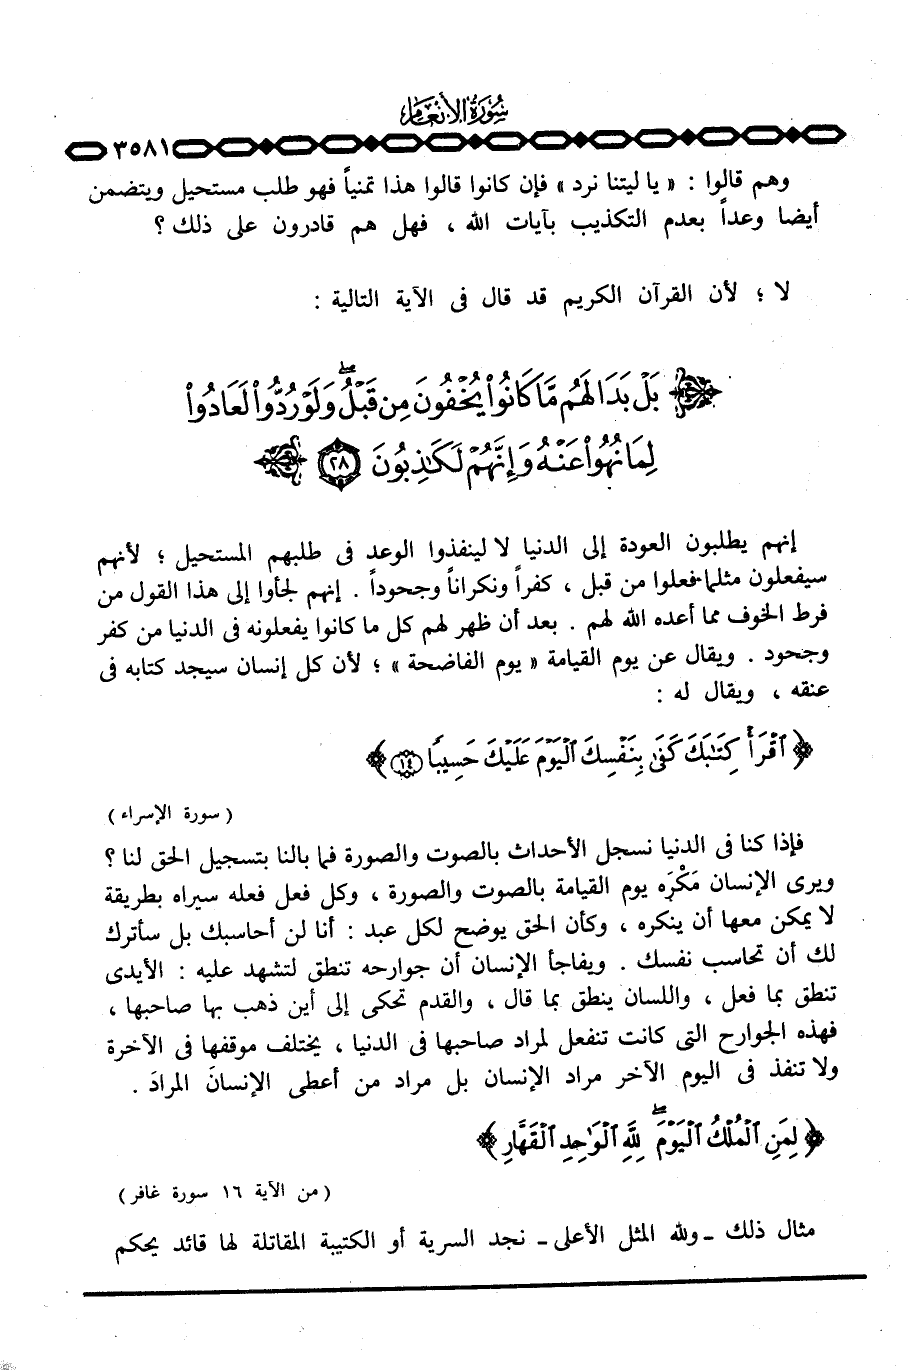 سورة الأنعام
٣٥٨١
وهم قالوا : « يا ليتنا نرد » فإن كانوا قالوا هذا تمنياً فهو طلب مستحيل ويتضمن
أيضا وعداً بعدم التكذيب بآيات الله ، فهل هم قادرون على ذلك ؟
لا ؛ لأن القرآن الكريم قد قال فى الآية التالية :
﴿ بَلْ بَدَا لَهُم مَّا كَانُوا۟ يُخْفُونَ مِن قَبْلُ ۖ وَلَوْ رُدُّوا۟ لَعَادُوا۟
لِمَا نُهُوا۟ عَنْهُ وَإِنَّهُمْ لَكَـٰذِبُونَ ٢٨ ﴾
إنهم يطلبون العودة إلى الدنيا لا لينفذوا الوعد فى طلبهم المستحيل ؛ لأنهم
سيفعلون مثلما فعلوا من قبل ، كفراً ونكراناً وجحوداً . إنهم لجأوا إلى هذا القول من
فرط الخوف مما أعده الله لهم . بعد أن ظهر لهم كل ما كانوا يفعلونه فى الدنيا من كفر
وجحود . ويقال عن يوم القيامة « يوم الفاضحة » ؛ لأن كل إنسان سيجد كتابه فى
عنقه ، ويقال له :
﴿ ٱقْرَأْ كِتَـٰبَكَ كَفَىٰ بِنَفْسِكَ ٱلْيَوْمَ عَلَيْكَ حَسِيبًا ١٤ ﴾
( سورة الإسراء )
فإذا كنا فى الدنيا نسجل الأحداث بالصوت والصورة فما بالنا بتسجيل الحق لنا ؟
ويرى الإنسان مَكْرَه يوم القيامة بالصوت والصورة ، وكل فعل فعله سيراه بطريقة
لا يمكن معها أن ينكره ، وكأن الحق يوضح لكل عبد : أنا لن أحاسبك بل سأترك
لك أن تحاسب نفسك . ويفاجأ الإنسان أن جوارحه تنطق لتشهد عليه : الأيدى
تنطق بما فعل ، واللسان ينطق بما قال ، والقدم تحكى إلى أين ذهب بها صاحبها ،
فهذه الجوارح التى كانت تنفعل لمراد صاحبها فى الدنيا ، يختلف موقفها فى الآخرة
ولا تنفذ فى اليوم الآخر مراد الإنسان بل مراد من أعطى الإنسانَ المرادَ .
﴿ لِّمَنِ ٱلْمُلْكُ ٱلْيَوْمَ ۖ لِلَّهِ ٱلْوَٰحِدِ ٱلْقَهَّارِ ﴾
( من الآية ١٦ سورة غافر )
مثال ذلك ـ ولله المثل الأعلى ـ نجد السرية أو الكتيبة المقاتلة لها قائد يحكم